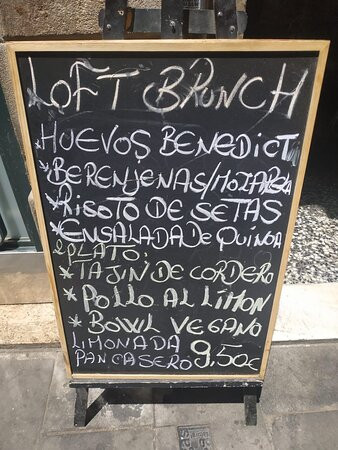 LOFT BRUNCH
*HUEVOS BENEDICT
*BERENJENAS/MOZARELA
*RISOTO DE SETAS
*ENSALADA DE QUINOA
2 PLATO;
*TAJIN DE CORDERO
*POLLO AL LIMON
*BOWL VEGANO
LIMONADA
PAN CASERO 9,50€